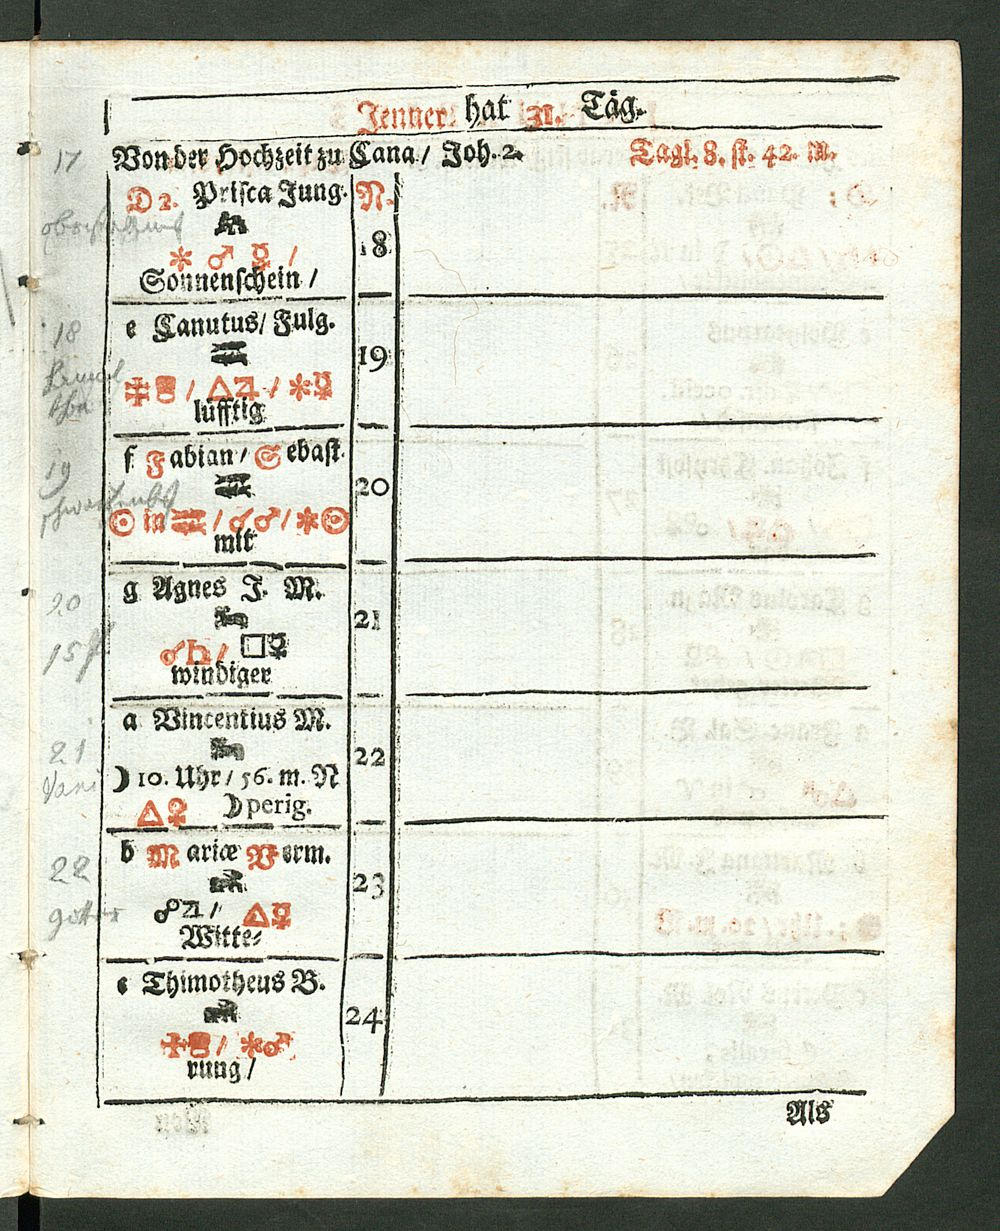 Jenner hat 31. Täg.
17 Von der Hochzeit zu Cana / Joh. 2. Tagl. 8. st. 42. M.
D 2. Prisca Jung. N.
18
✶ ♂ ☿ /
Sonnenschein /
18 e Canutus / Fulg.
♒
19
/ △♃ / ✶☿
lüfftig
19 f Fabian / Sebast.
♒
20
☉ in ♒ / ☌♂ / ✶☉
mit
20 g Agnes J. M.
21
☌♄ / □☿
windiger
a Vincentius M.
21
22
☽ 10. Uhr / 56. m. N
△♀ ☽ perig.
b Mariæ Verm.
22
23
☍♃ / △☿
Witte=
c Thimotheus B.
24
/ ✶♂
rung /
Als